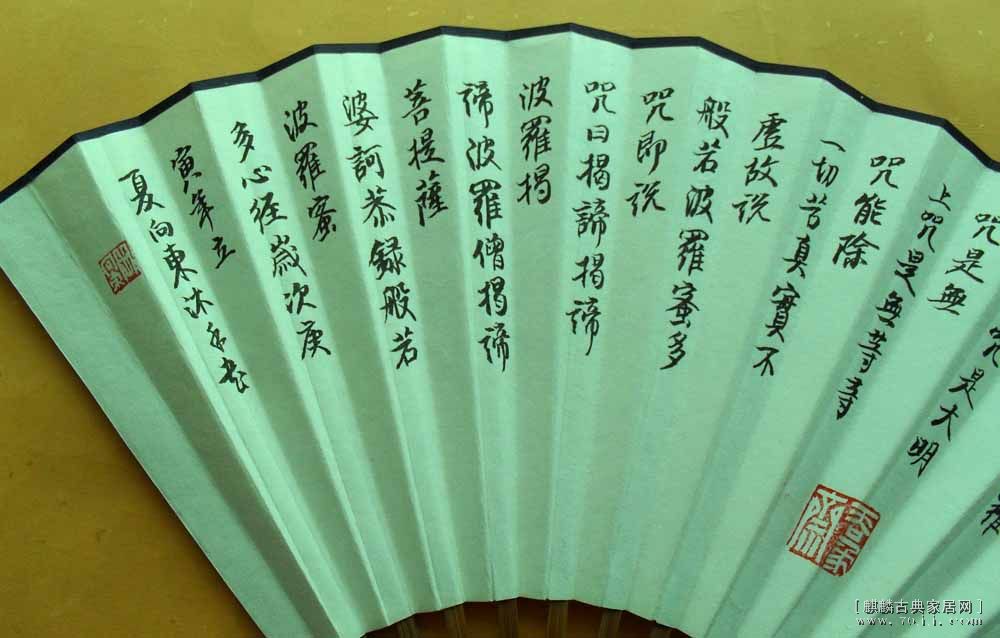 咒是大明
咒是無
上咒是無等等
咒能除
一切苦真實不
虛故說
般若波羅蜜多
咒即說
咒曰揭諦揭諦
波羅揭
諦波羅僧揭諦
菩提薩
婆訶恭錄般若
波羅蜜
多心經歲次庚
寅年立
夏向東沐手書
[麒麟古典家居网]
www.70jj.com